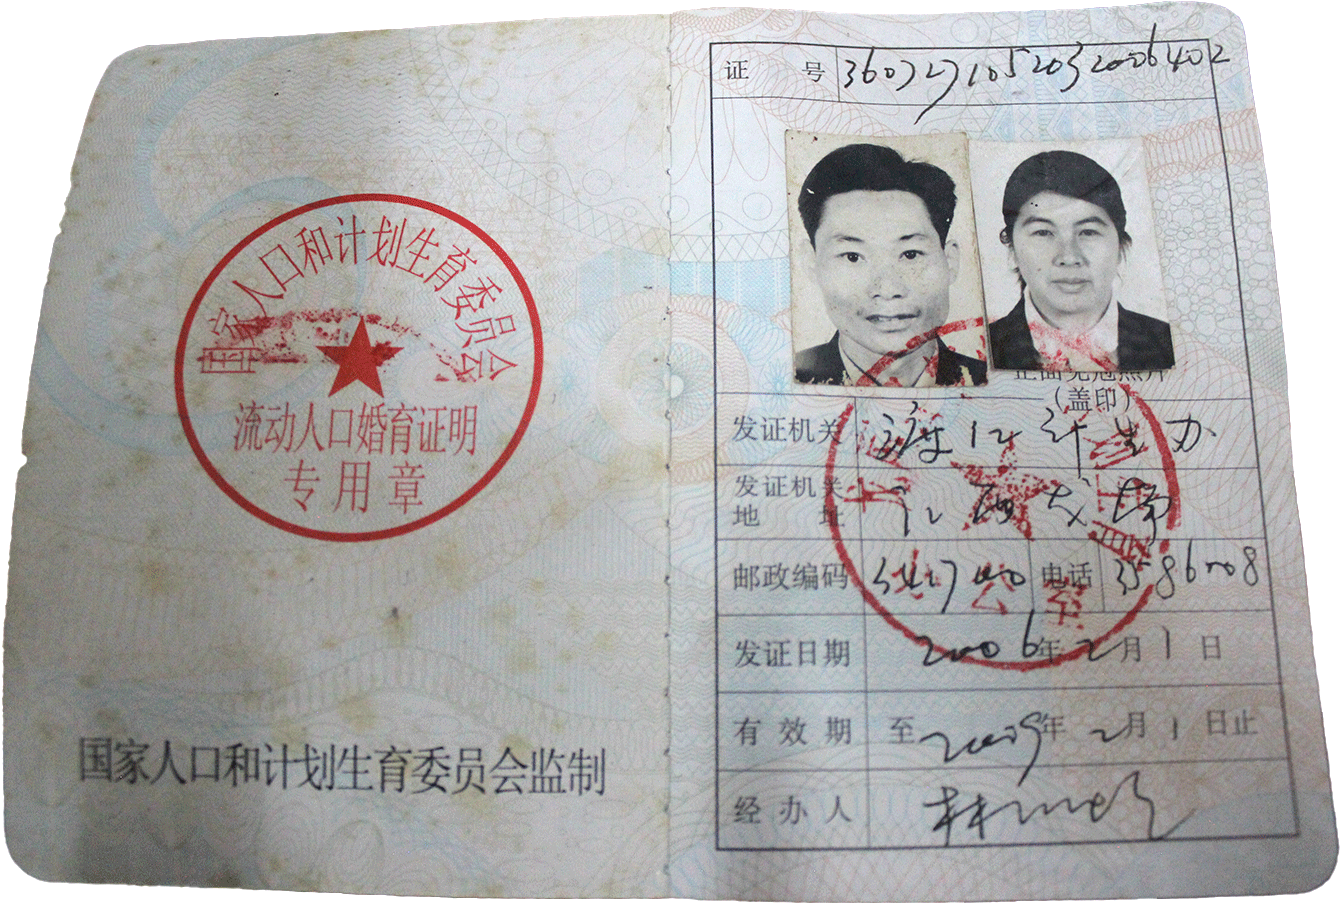 国家人口和计划生育委员会
流动人口婚育证明
专用章
国家人口和计划生育委员会监制
证 号 3607271052032006402
正面免冠照片
（盖印）
发证机关 计生办
发证机关
地 址 江西
邮政编码 341700 电话 3586008
发证日期 2006年2月1日
有效期 至2009年2月1日止
经办人 林